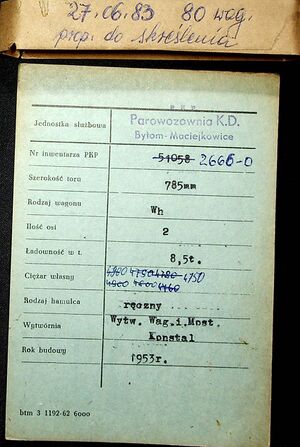 27.06.83 80 wag.
prop. do skreślenia
PKP
Jednostka służbowa Parowozownia K.D.
Bytom-Maciejkowice
Nr inwentarza PKP 54058 2666-0
Szerokość toru 785mm
Rodzaj wagonu Wh
Ilość osi 2
Ładowność w t. 8,5t.
Ciężar własny 4900 4750 4780 4750
4900 4600 4460
Rodzaj hamulca ręczny
Wytwórnia Wytw. Wag.i.Most.
Konstal
Rok budowy 1953r.
btm 3 1192-62 6000